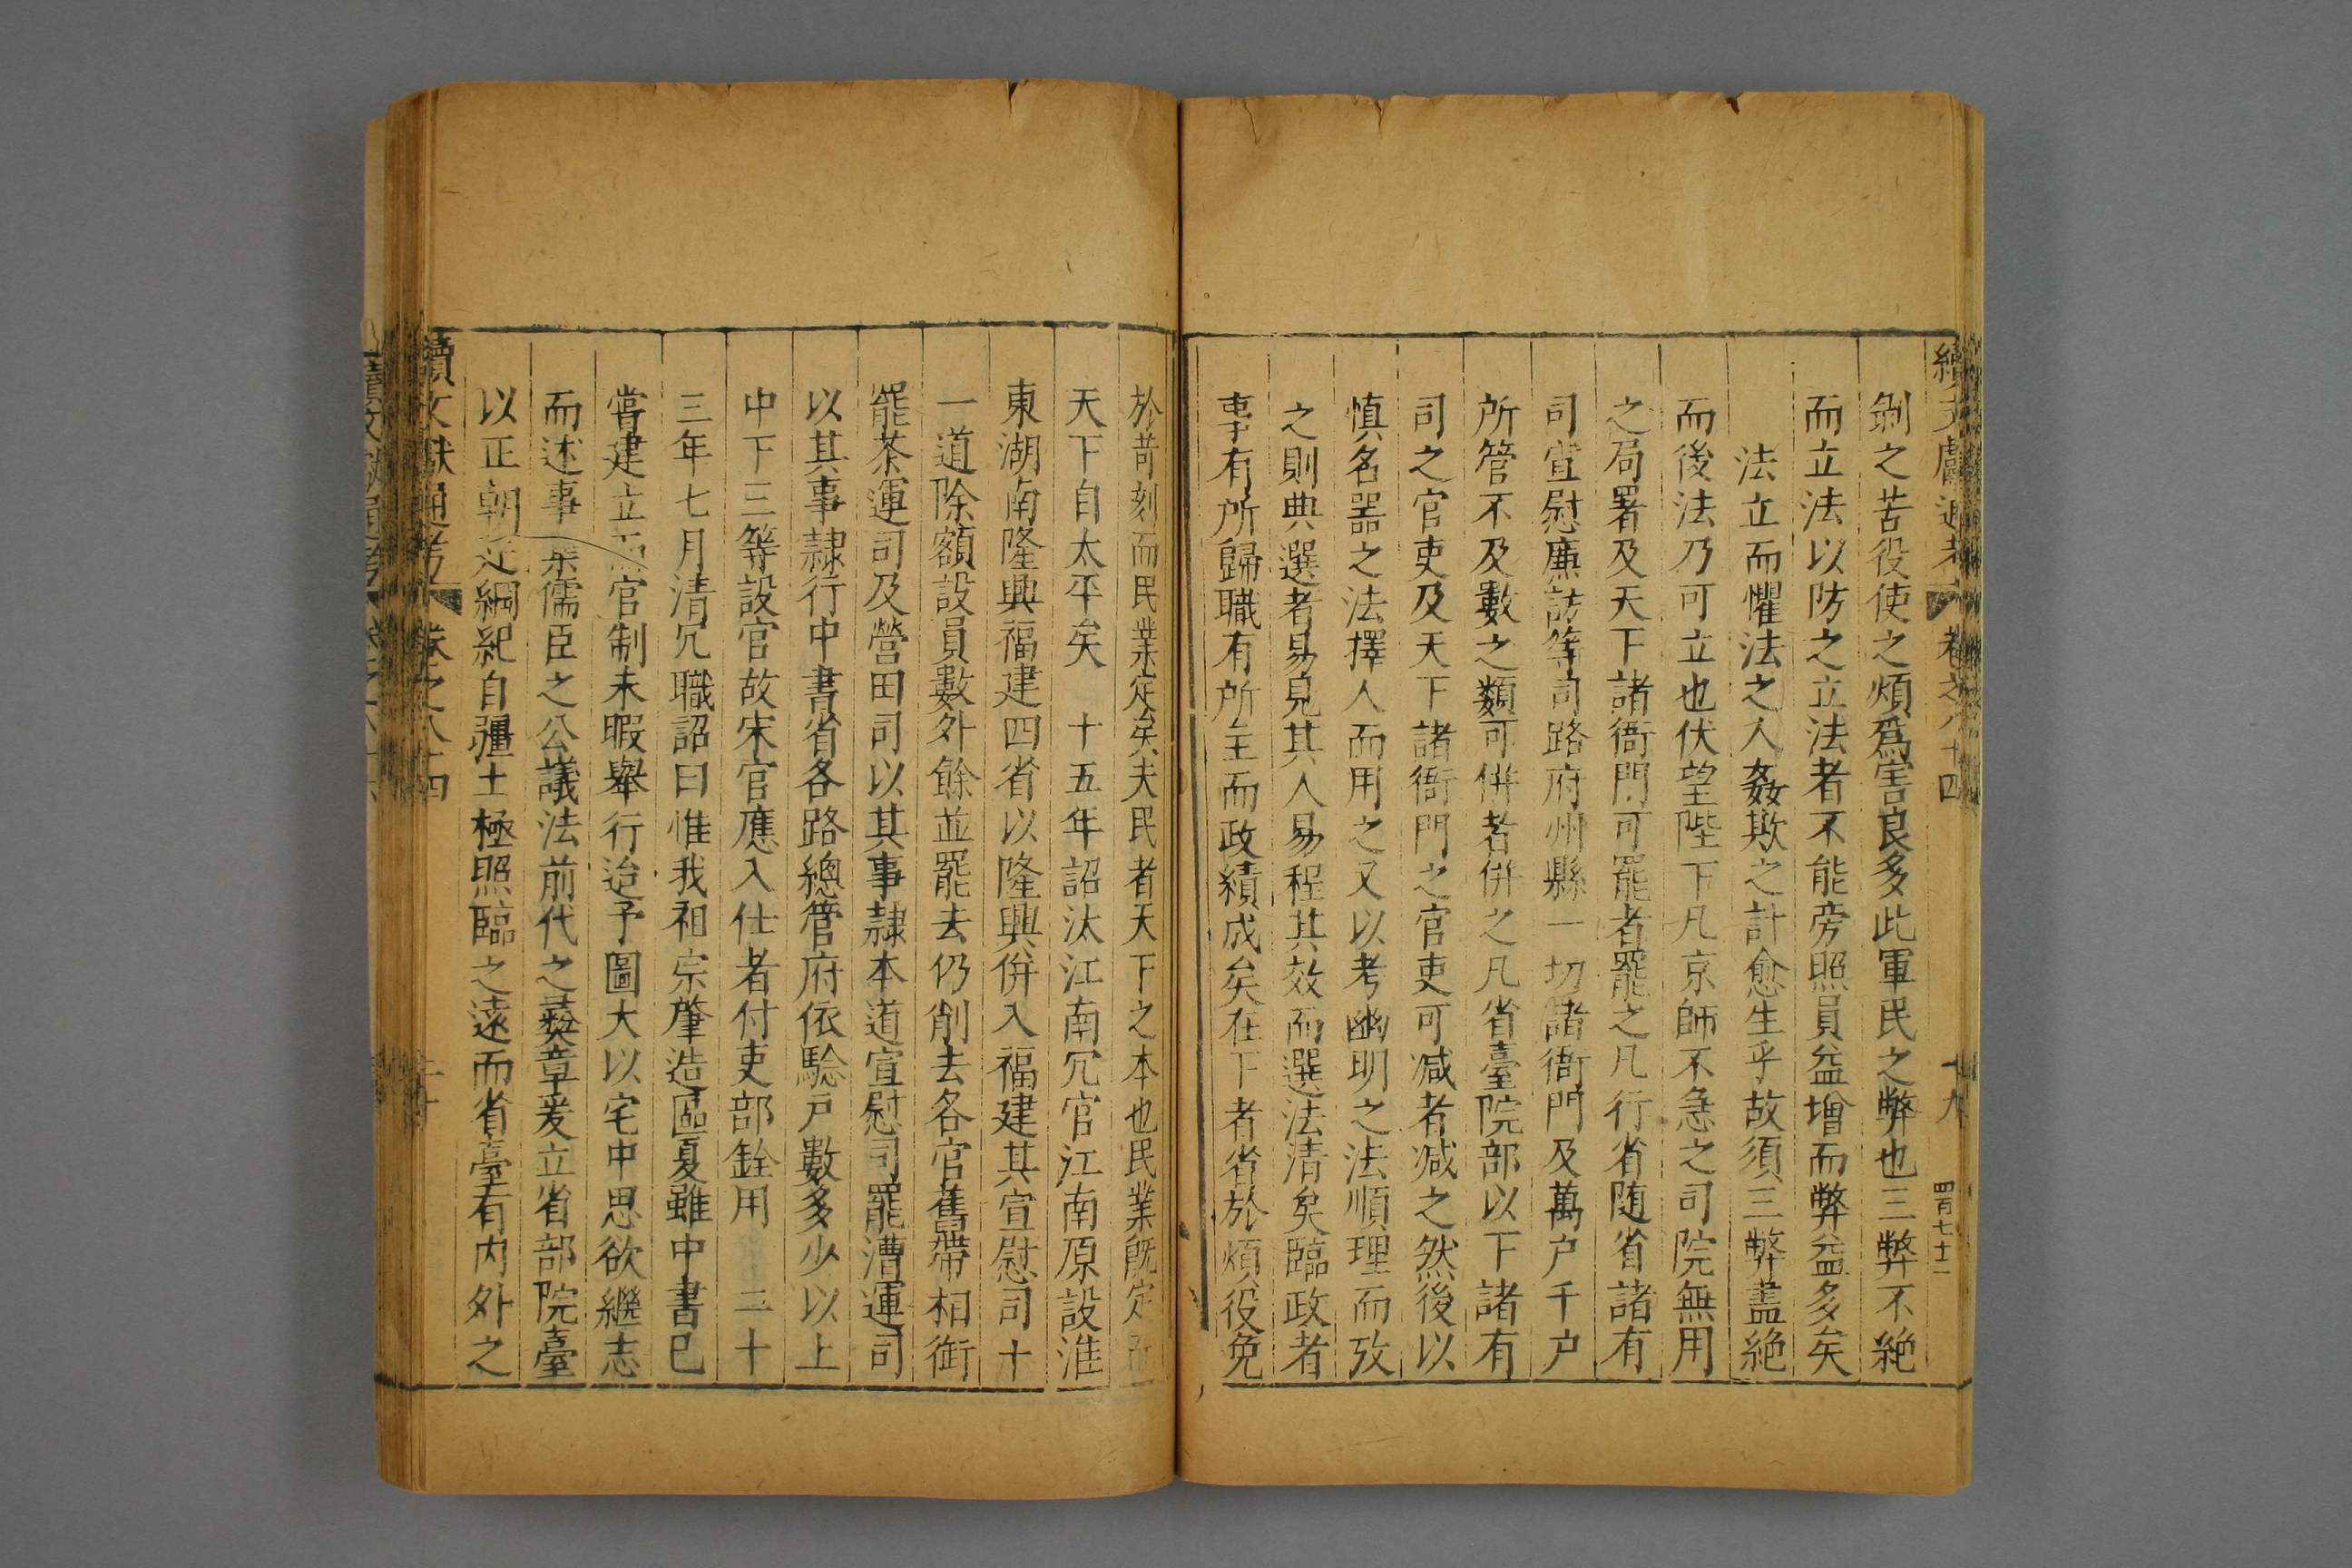 續文獻通考 卷之八十四 十九 四百七十二
剝之苦役使之煩爲害良多此軍民之弊也三弊不絶
而立法以防之立法者不能旁照員益增而弊益多矣
法立而懼法之人姦欺之計愈生乎故須三弊蓋絶
而後法乃可立也伏望陛下凡京師不急之司院無用
之局署及天下諸衙門可罷者罷之凡行省随省諸有
司宣慰廉訪等司路府州縣一切諸衙門及萬户千户
所管不及數之類可併者併之凡省臺院部以下諸有
司之官吏及天下諸衙門之官吏可减者减之然後以
慎名器之法擇人而用之又以考幽明之法順理而攷
之則典選者易見其人易程其效而選法清矣臨政者
事有所歸職有所主而政績成矣在下者省於煩役免
於苛刻而民業定矣夫民者天下之本也民業旣定而
天下自太平矣 十五年詔汰江南冗官江南原設淮
東湖南隆興福建四省以隆興併入福建其宣慰司十
一道除額設員數外餘並罷去仍削去各官舊帶相銜
罷茶運司及營田司以其事隸本道宣慰司罷漕運司
以其事隸行中書省各路總管府依驗户數多少以上
中下三等設官故宋官應入仕者付吏部銓用 二十
三年七月清冗職詔曰惟我祖宗肇造區夏雖中書已
嘗建立而官制未暇舉行迨予圖大以宅中思欲繼志
而述事 儒臣之公議法前代之彝章爰立省部院臺
以正朝廷綱紀自疆土極照臨之遠而省臺有内外之
續文獻通考 卷之八十四 二十
續文獻通考